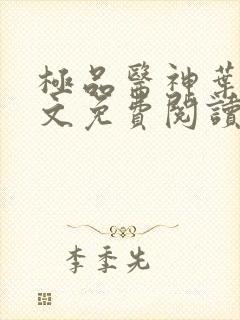 極品醫神葉
文免費閱讀
李季先